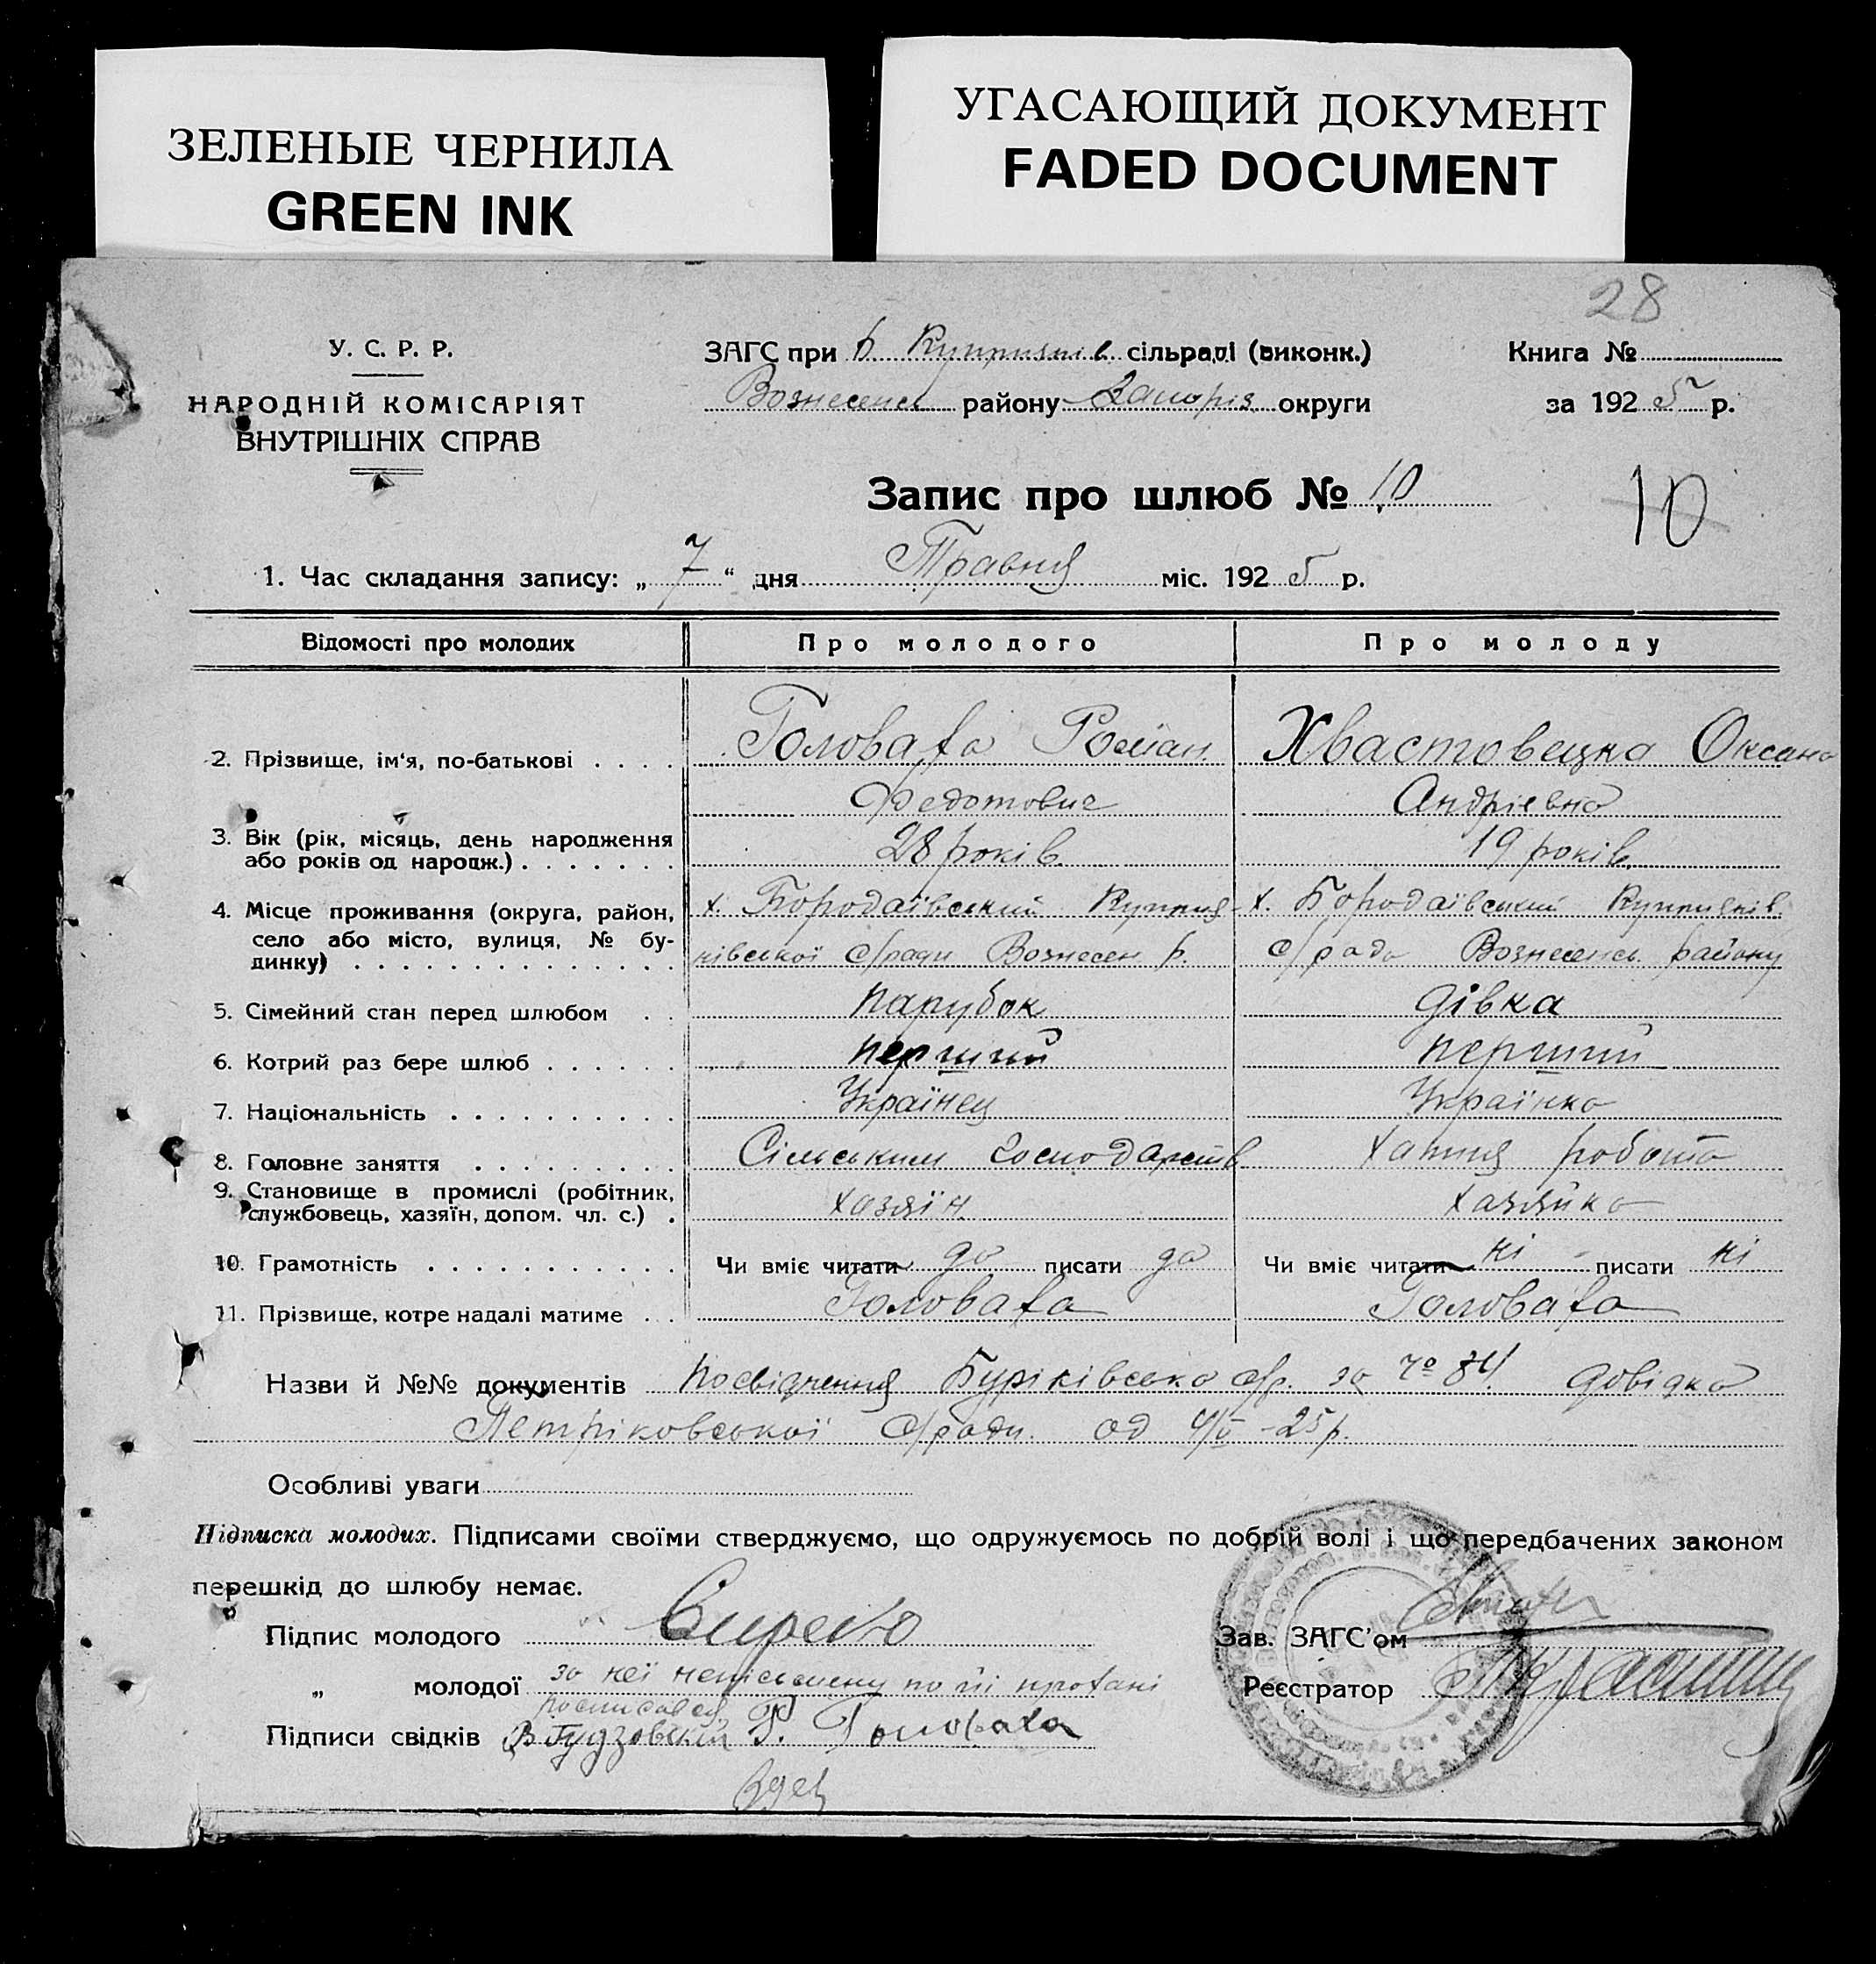 ЗЕЛЕНЫЕ ЧЕРНИЛА
GREEN INK
УГАСАЮЩИЙ ДОКУМЕНТ
FADED DOCUMENT
28
У. С. Р. Р.
НАРОДНІЙ КОМІСАРІЯТ
ВНУТРІШНІХ СПРАВ
ЗАГС при Куприянів. сільраді (виконк.)
Вознесенсь району Запоріз. округи
Книга №
за 192 5 р.
Запис про шлюб № 10
10
1. Час складання запису: „ 7 “ дня Травня міс. 192 5 р.
Відомості про молодих Про молодого Про молоду
2. Прізвище, ім'я, по-батькові . . . . Головата Роман Хвастовецка Оксана
Федотович Андріевна
3. Вік (рік, місяць, день народження
або років од народж.) . . . . . . . 28 років 19 років
4. Місце проживання (округа, район, х. Бородаївський Куприя- х. Бородаївський Куприянів.
село або місто, вулиця, № бу- нівської с/ради Вознесен р. с/рада Вознесенсь. району
динку) . . . . . . . . . . . . . .
5. Сімейний стан перед шлюбом . . парубок дівка
6. Котрий раз бере шлюб . . . . . . перший перший
7. Національність . . . . . . . . . . Українец Українка
8. Головне заняття . . . . . . . . . Сільським господарств Хатня робота
9. Становище в промислі (робітник,
службовець, хазяїн, допом. чл. с.) . хазяїн хазяйка
10. Грамотність . . . . . . . . . . . Чи вміє читати да писати да Чи вміє читати ні писати ні
11. Прізвище, котре надалі матиме . . Головата Головата
Назви й №№ документів посвідчення с/р. за № 84 довідка
Петріковської с/ради од 4/V-25р.
Особливі уваги
Підписка молодих. Підписами своїми стверджуємо, що одружуємось по добрій волі і що передбачених законом
перешкід до шлюбу немає.
Підпис молодого
„ молодої за неї неписьмену по її прохані
росписався
Підписи свідків Р. Головата
Зав. ЗАГС'ом
Реєстратор